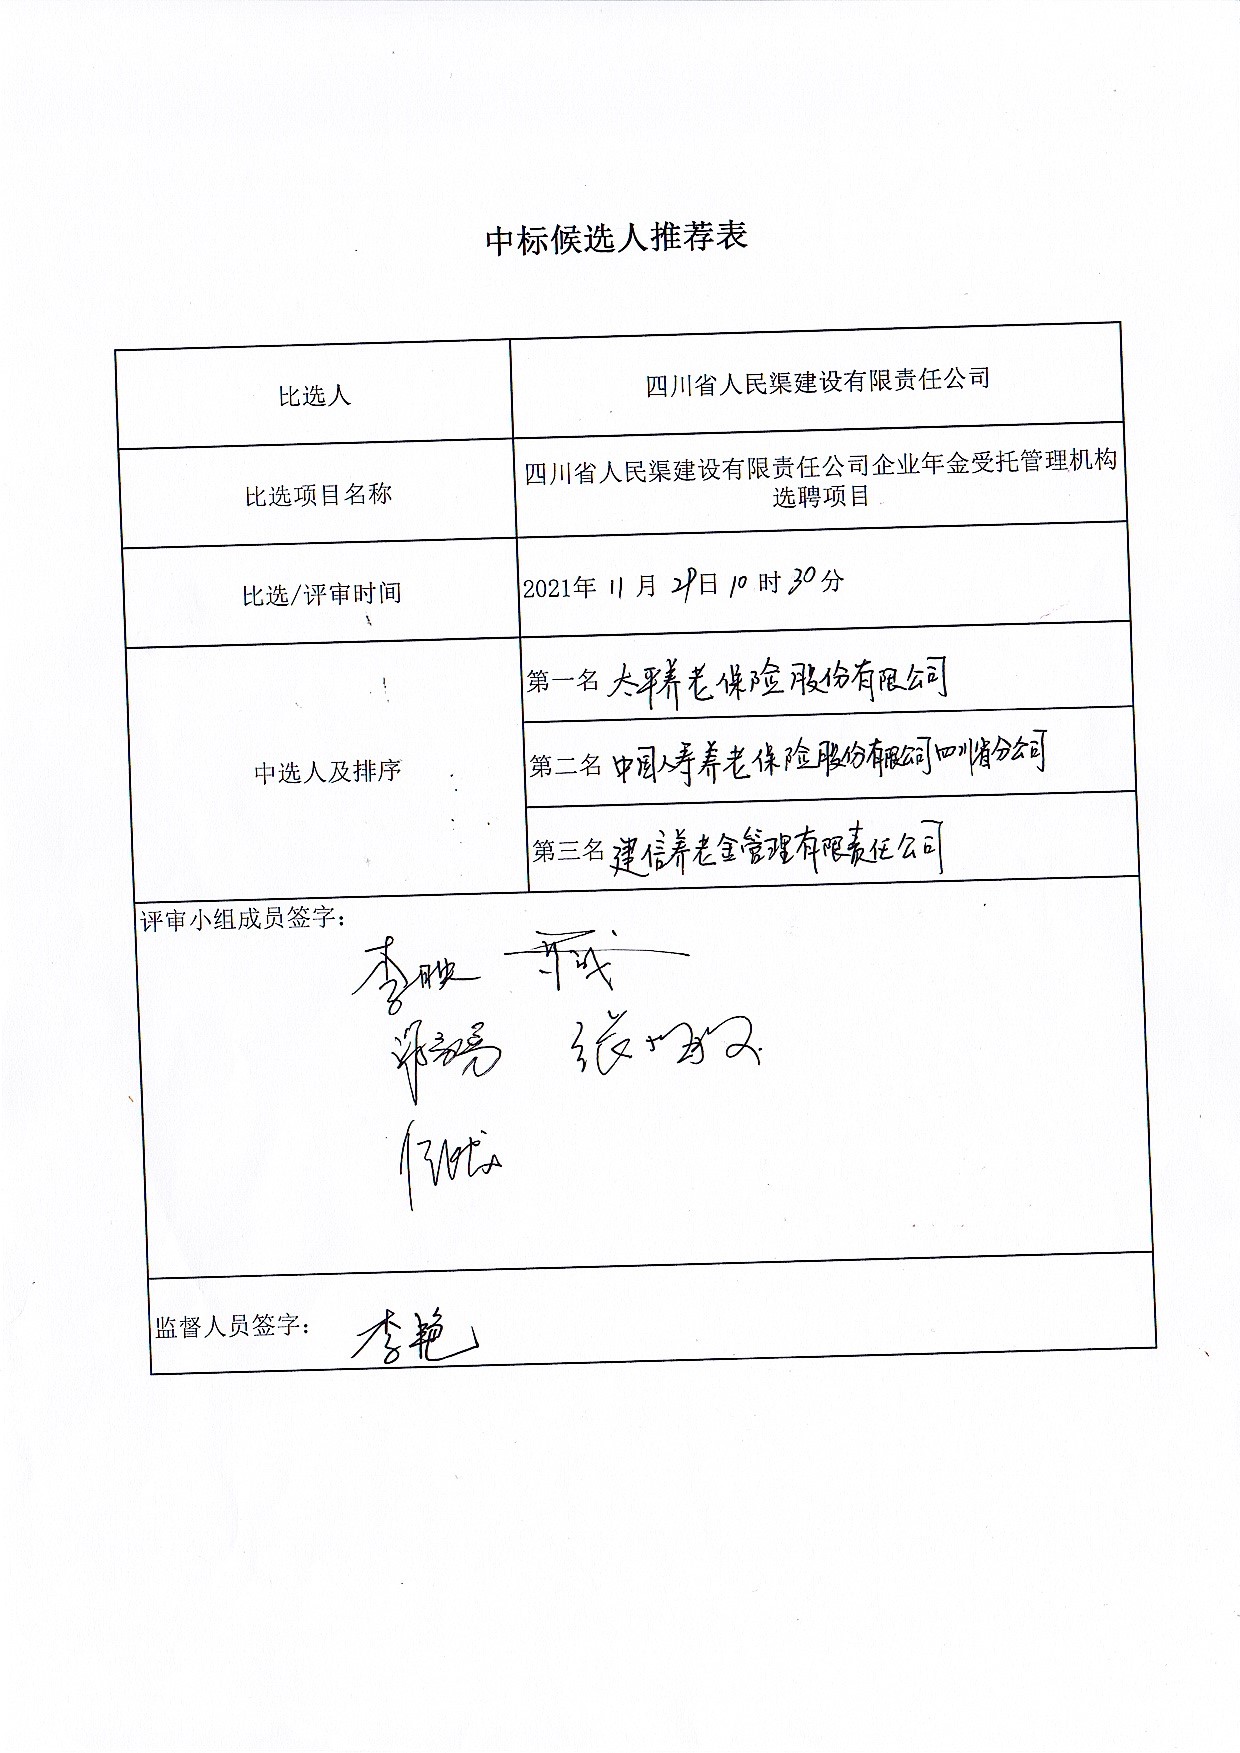 中标候选人推荐表
比选人
四川省人民渠建设有限责任公司
比选项目名称
四川省人民渠建设有限责任公司企业年金受托管理机构
选聘项目
比选/评审时间
2021年 11 月 29日 10 时 30分
中选人及排序
第一名 太平养老保险股份有限公司
第二名 中国人寿养老保险股份有限公司四川省分公司
第三名 建信养老金管理有限责任公司
评审小组成员签字：
李映
监督人员签字：
李艳